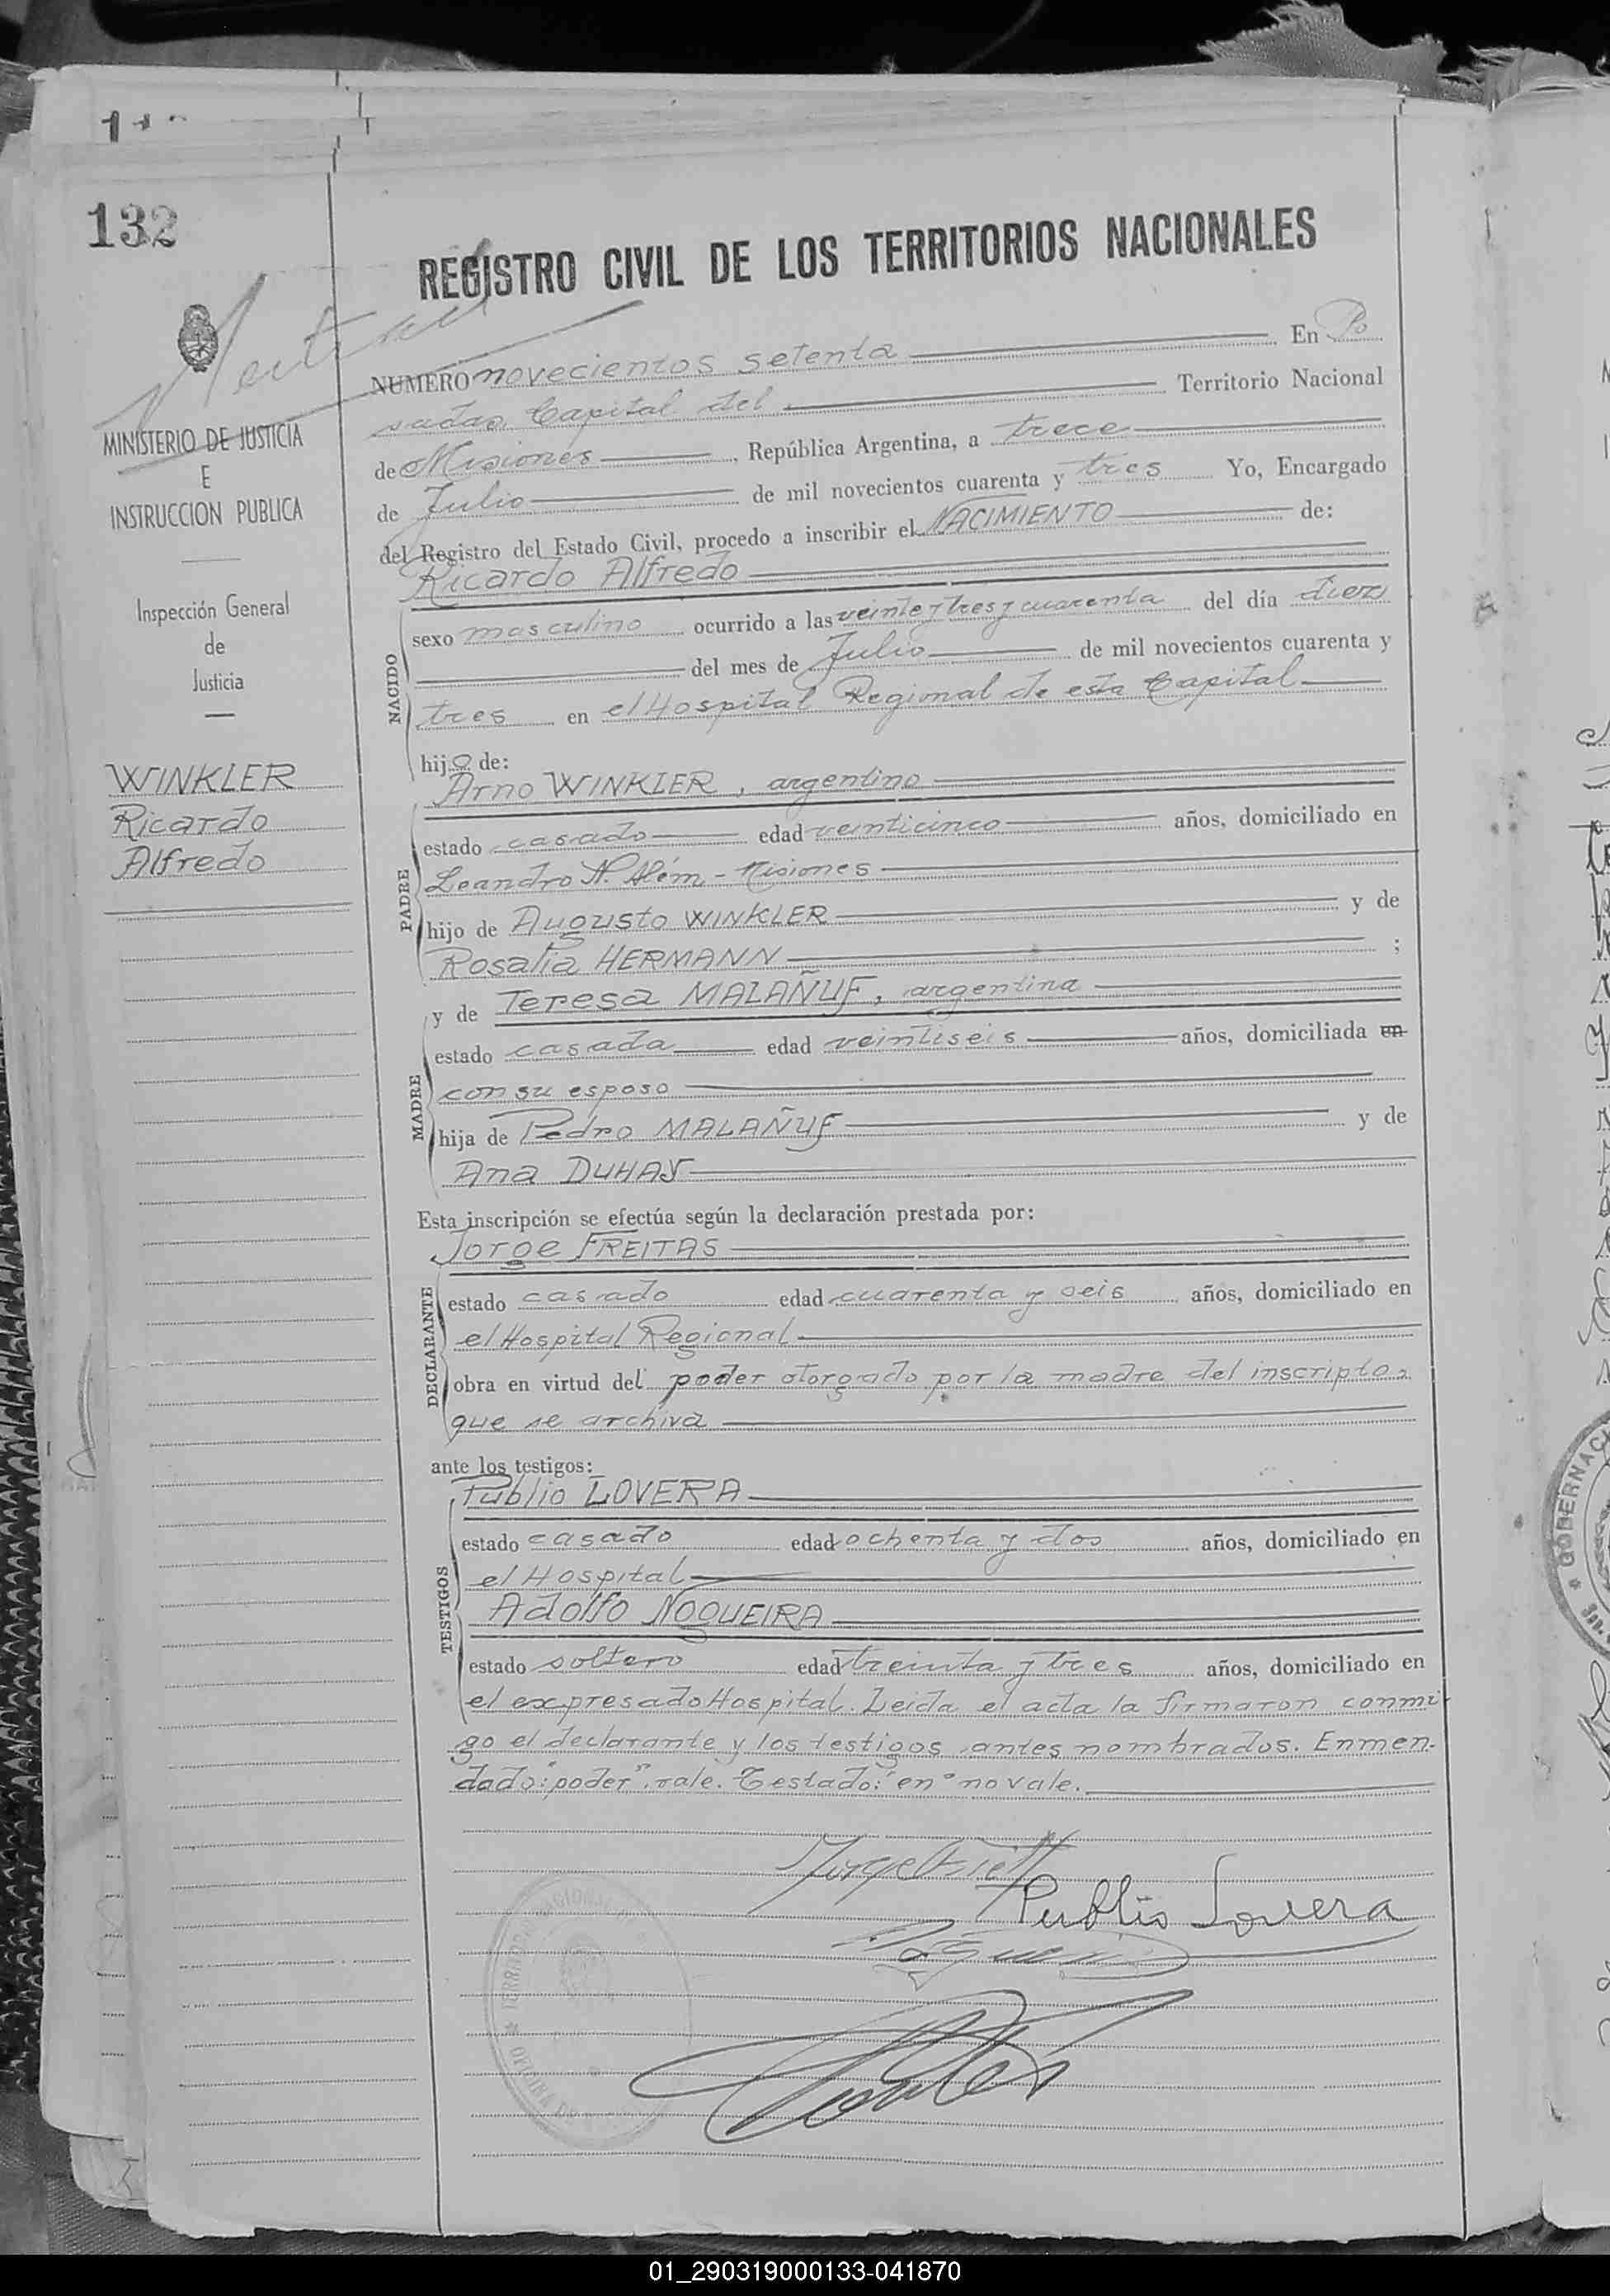 132
REGISTRO CIVIL DE LOS TERRITORIOS NACIONALES
MINISTERIO DE JUSTICIA
E
INSTRUCCION PUBLICA
Inspección General
de
Justicia
WINKLER
Ricardo
Alfredo
NUMERO novecientos setenta En Po
sadas, Capital del Territorio Nacional
de Misiones, República Argentina, a trece
de Julio de mil novecientos cuarenta y tres Yo, Encargado
del Registro del Estado Civil, procedo a inscribir el NACIMIENTO de:
Ricardo Alfredo
NACIDO
sexo masculino ocurrido a las veinte y tres y cuarenta del día diez
del mes de Julio de mil novecientos cuarenta y
tres en el Hospital Regional de esta Capital
hijo de:
Arno WINKLER, argentino
PADRE
estado casado edad veinticinco años, domiciliado en
Leandro N. Além - Misiones
hijo de Augusto WINKLER y de
Rosalia HERMANN ;
y de Teresa MALAÑUF, argentina
MADRE
estado casada edad veintiseis años, domiciliada en
con su esposo
hija de Pedro MALAÑUF y de
Ana DUHAY
Esta inscripción se efectúa según la declaración prestada por:
Jorge FREITAS
DECLARANTE
estado casado edad cuarenta y seis años, domiciliado en
el Hospital Regional
obra en virtud del poder otorgado por la madre del inscripto,
que se archiva
ante los testigos:
Publio LOVERA
TESTIGOS
estado casado edad ochenta y dos años, domiciliado en
el Hospital
Adolfo NOGUEIRA
estado soltero edad treinta y tres años, domiciliado en
el expresado Hospital. Leida el acta la firmaron conmi
go el declarante y los testigos antes nombrados. Enmen-
dado: "poder". vale. Testado: "en" no vale.
Publio Lovera
GOBERNAC
01_290319000133-041870